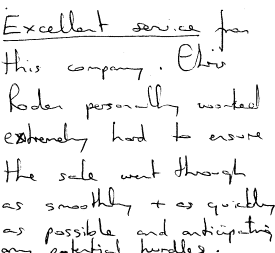 Excellent service from
this company. Chris
Roden personally worked
extremely hard to ensure
the sale went through
as smoothly + as quickly
as possible and anticipating
any potential hurdles.